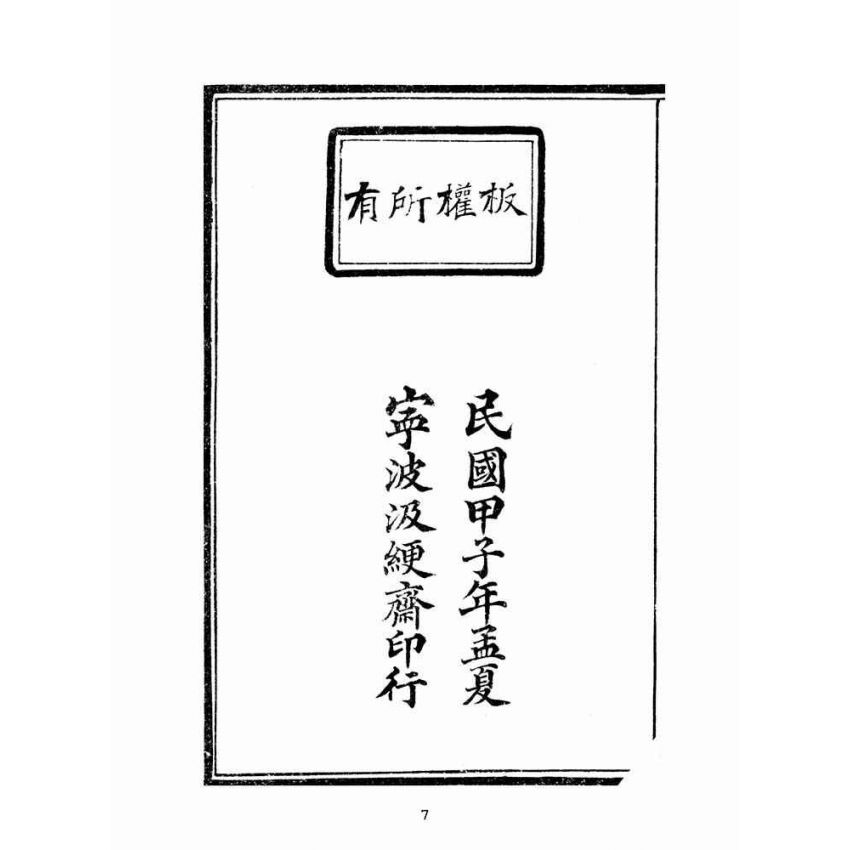 板權所有
民國甲子年孟夏
寧波汲綆齋印行
7